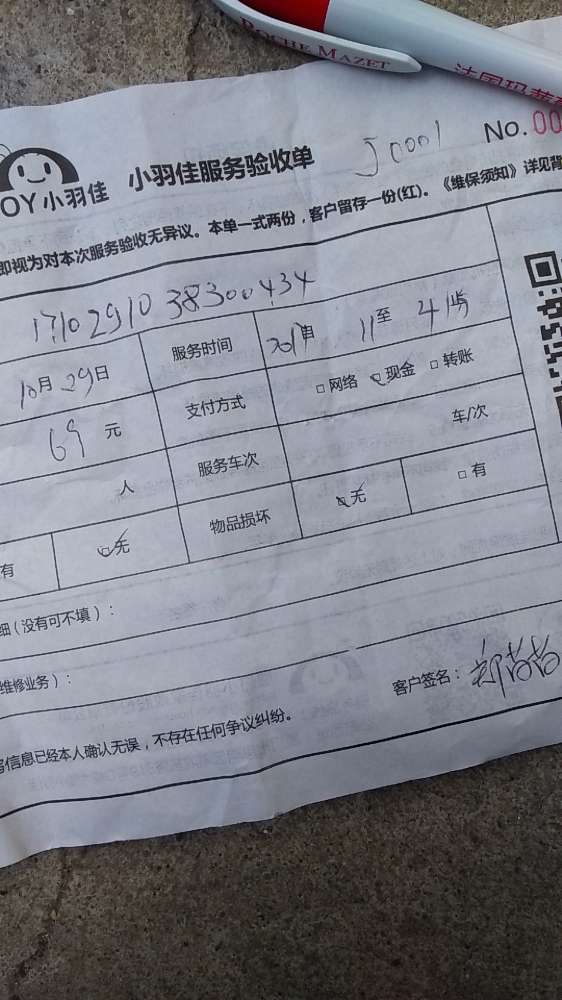 ROCHE MAZET
法国玛茜
OY小羽佳 小羽佳服务验收单 J0001 No.00
即视为对本次服务验收无异议。本单一式两份，客户留存一份(红)。《维保须知》详见背
1710291038300434
10月29日 服务时间 11至
69元 支付方式 □网络 □现金 □转账
人 服务车次 车/次
有 □无 物品损坏 □无 □有
细（没有可不填）：
维修业务）：
客户签名：
信息已经本人确认无误，不存在任何争议纠纷。